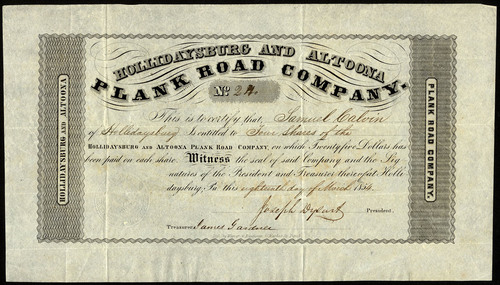 HOLLIDAYSBURG AND ALTOONA
PLANK ROAD COMPANY.
No. 24.
This is to certify that, Samuel Calvin
of Hollidaysburg Is entitled to Four Shares of the
HOLLIDAYSBURG AND ALTOONA PLANK ROAD COMPANY, on which Twentyfive Dollars has
been paid on each share. Witness the seal of said Company and the Sig-
natures of the President and Treasurer thereof at Holli-
daysburg, Pa this eighteenth day of March 1854.
Joseph Dysart President.
Treasurer James Gardner
HOLLIDAYSBURG AND ALTOONA
PLANK ROAD COMPANY.